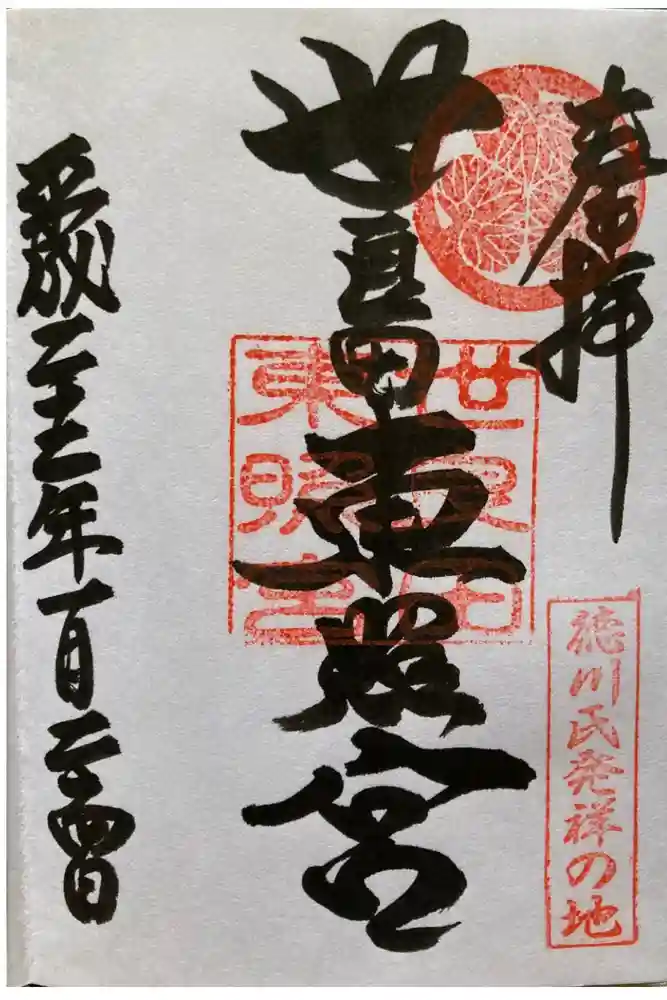 奉拝
徳川氏発祥の地
世良田東照宮
世良田
東照宮
平成二十二年一月二十四日